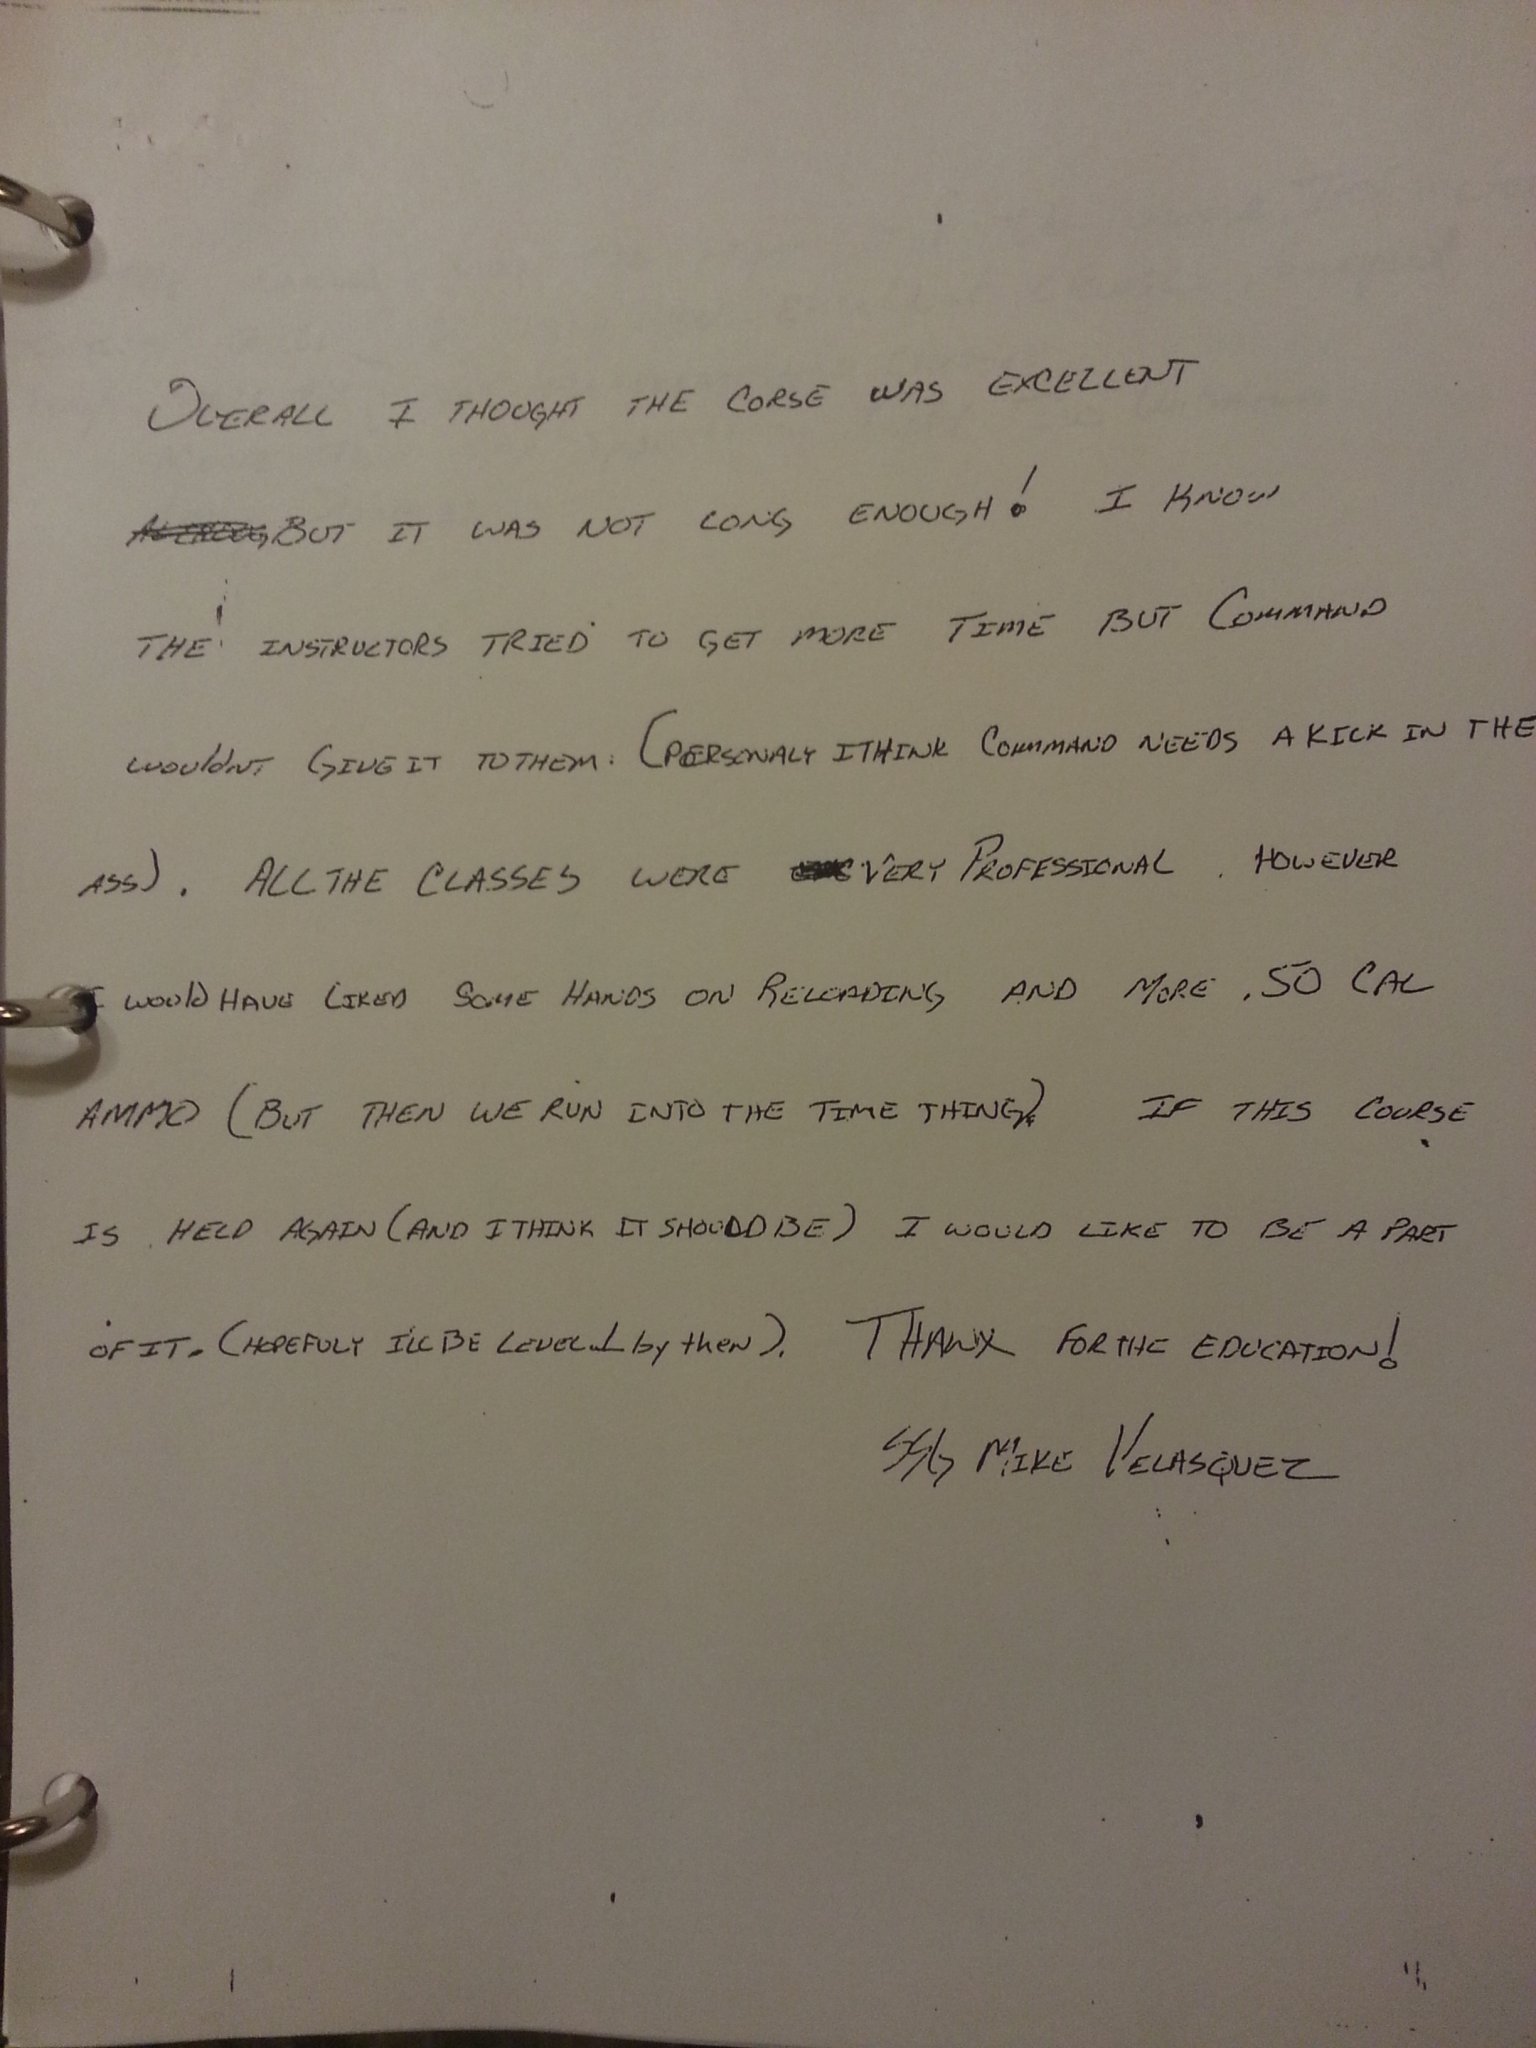 OVERALL I THOUGHT THE CORSE WAS EXCELLENT
BUT IT WAS NOT LONG ENOUGH! I KNOW
THE INSTRUCTORS TRIED TO GET MORE TIME BUT COMMAND
WOULDNT GIVE IT TO THEM. (PERSONALY I THINK COMMAND NEEDS A KICK IN THE
ASS). ALL THE CLASSES WERE VERY PROFESSIONAL. HOWEVER
I WOULD HAVE LIKED SOME HANDS ON RELOADING AND MORE .50 CAL
AMMO (BUT THEN WE RUN INTO THE TIME THING). IF THIS COURSE
IS HELD AGAIN (AND I THINK IT SHOULD BE) I WOULD LIKE TO BE A PART
OF IT. (HOPEFULY I'LL BE LEVEL 1 by then). THANX FOR THE EDUCATION!
SSG MIKE VELASQUEZ